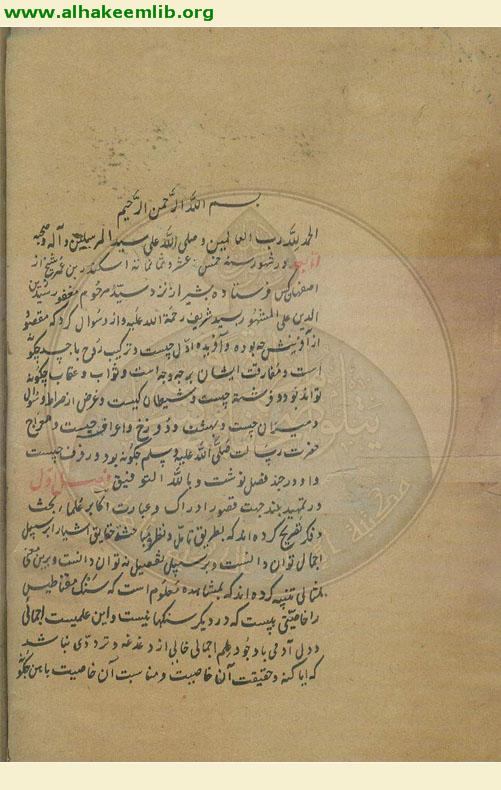 www.alhakeemlib.org
بسم الله الرحمن الرحیم
الحمد لله رب العالمین و صلی الله علی سید المرسلین و آله و صحبه
در شهور سنه خمس عشر و ثمانمائة اسکندر بن عمر شیخ از
اصفهان کس فرستاده بشیراز نزد سید مرحوم مغفور
الدین علی المشهور بسید شریف رحمة الله علیه و از و سوال کرد که مقصود
از آفرینش چه بوده و آفریده اول چیست و ترکیب روح با جسد چگونه
است و مفارقت ایشان بر چه وجه است و ثواب و عقاب چگونه
تواند بود و فرشته چیست و شیطان کیست و غرض از صراط و سوال
و میزان چیست و بهشت و دوزخ و اعراف چیست و معراج
حضرت رسالت صلی الله علیه و سلم چگونه بود و رفرف چیست
و او در چند فصل نوشت و بالله التوفیق فصل اول
در تمهید بعد جهت قصور ادراک و عبارت اکابر علما بحث
و فکر تصریح کرده اند که بطریق تامل و نظر و مباحثه حقایق اشیا بر سبیل
اجمال توان دانست و بر سبیل تفصیل نه توان دانست و برین معنی
بمثالی تنبیه کرده اند که بمشاهده معلوم است که سنگ مقناطیس
را خاصیتی هست که در دیگر سنگها نیست و این علمیست اجمالی
و دل آدمی با وجود علم اجمالی خالی از دغدغه و ترددی نباشد
که آیا کنه و حقیقت آن خاصیت و مناسبت آن خاصیت با آهن چگونه